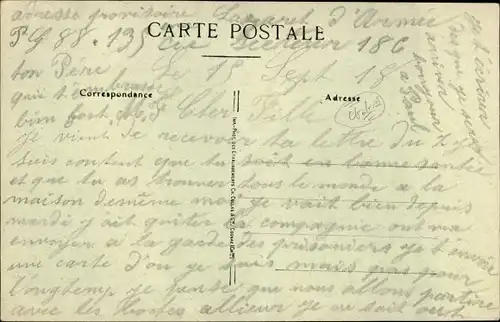 adresse provisoire Lazaret d'Armée
CARTE POSTALE
P G 88. 135 Cie Secteur 180
ton Père Le 15 Sept 18
qui t'embrasse
bien fort
Correspondance
Adresse
Chère Fille
je vient de recevoir ta lettre du
suis content que tu soit en bonne santée
et que tu as trouver tous le monde a la
maison de même moi je vait bien depuis
mardi j'ait quitter la compagnie ont ma
envoyer a la garde des prisoniers je t'envoir
une carte d'ou je suis mais pas pour
longtemp je pense que nous allons partire
avec les Boches allieur je ne sait out
je t'écrirai
des que je serai
arriver
bonjour
a Paul